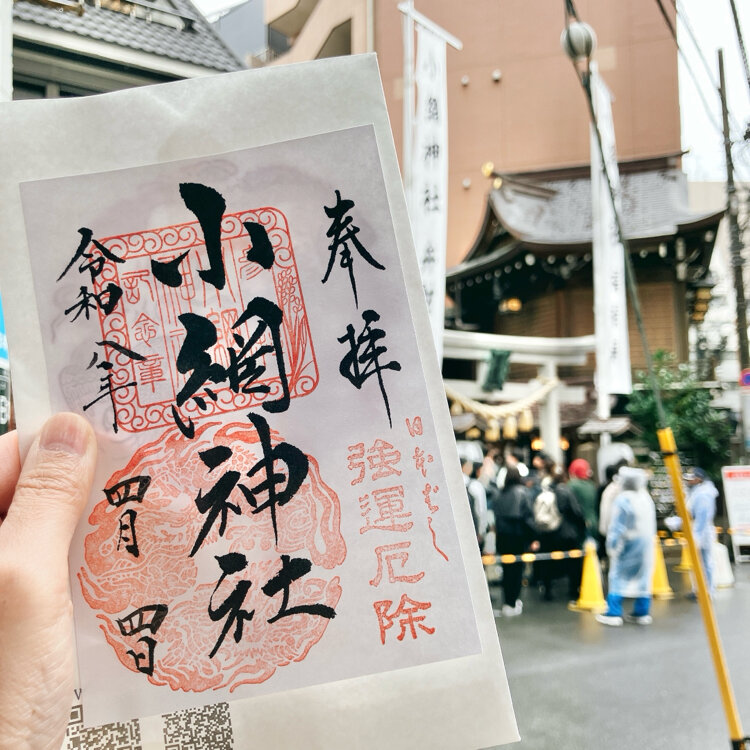 奉拝
小網神社
令和八年
四月
四日
日本ばし
強運厄除
小網神社